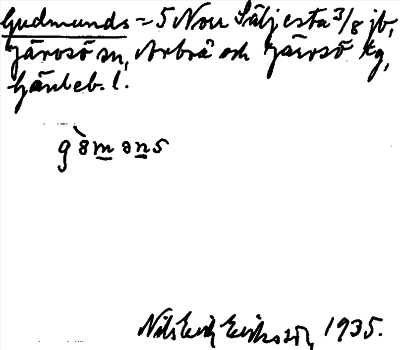 Gudmunds = 5 Norr Säljesta 3/8 jb,
Järvsö sn, Arbrå och Järvsö tg,
Gävleb. l.
gɵ̀məns
Nils Erik Eriksson, 1935.